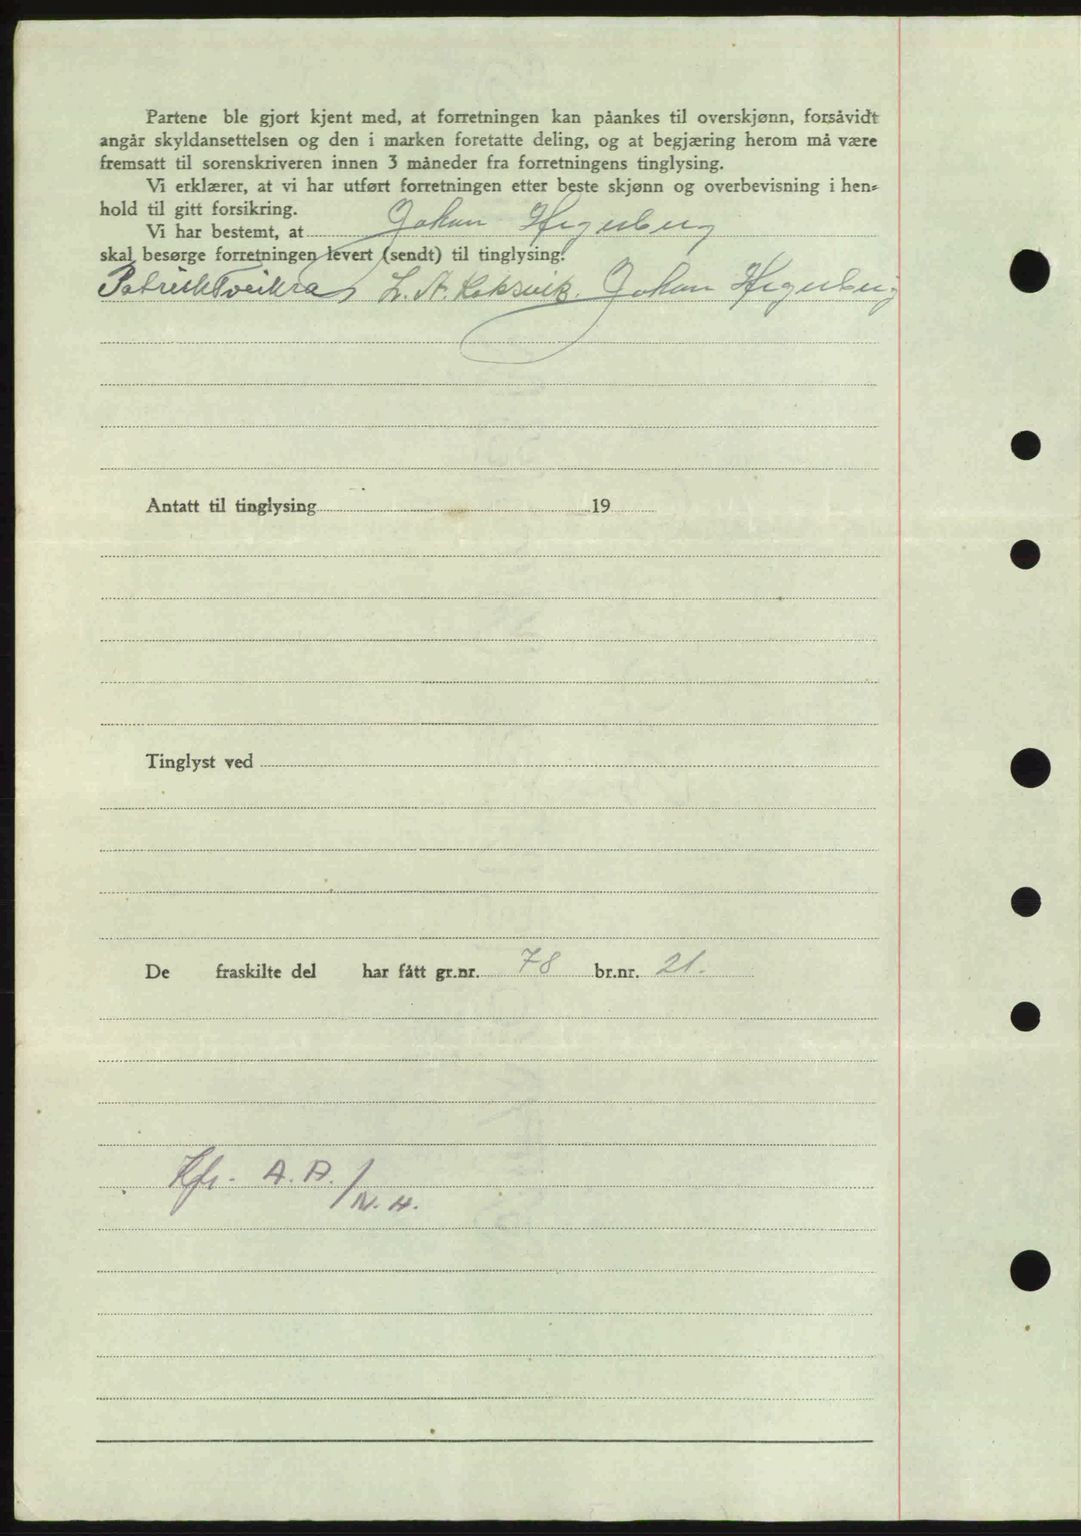 Partene ble gjort kjent med, at forretningen kan påankes til overskjønn, forsåvidt
angår skyldansettelsen og den i marken foretatte deling, og at begjæring herom må være
fremsatt til sorenskriveren innen 3 måneder fra forretningens tinglysing.
Vi erklærer, at vi har utført forretningen etter beste skjønn og overbevisning i hen-
hold til gitt forsikring.
Vi har bestemt, at Johan Hegerberg
skal besørge forretningen levert (sendt) til tinglysing.
Patrick Tveikra L. A. Koksvik. Johan Hegerberg
Antatt til tinglysing 19
Tinglyst ved
De fraskilte del har fått gr.nr. 78 br.nr. 21.
Kfr. A. A./N. H.